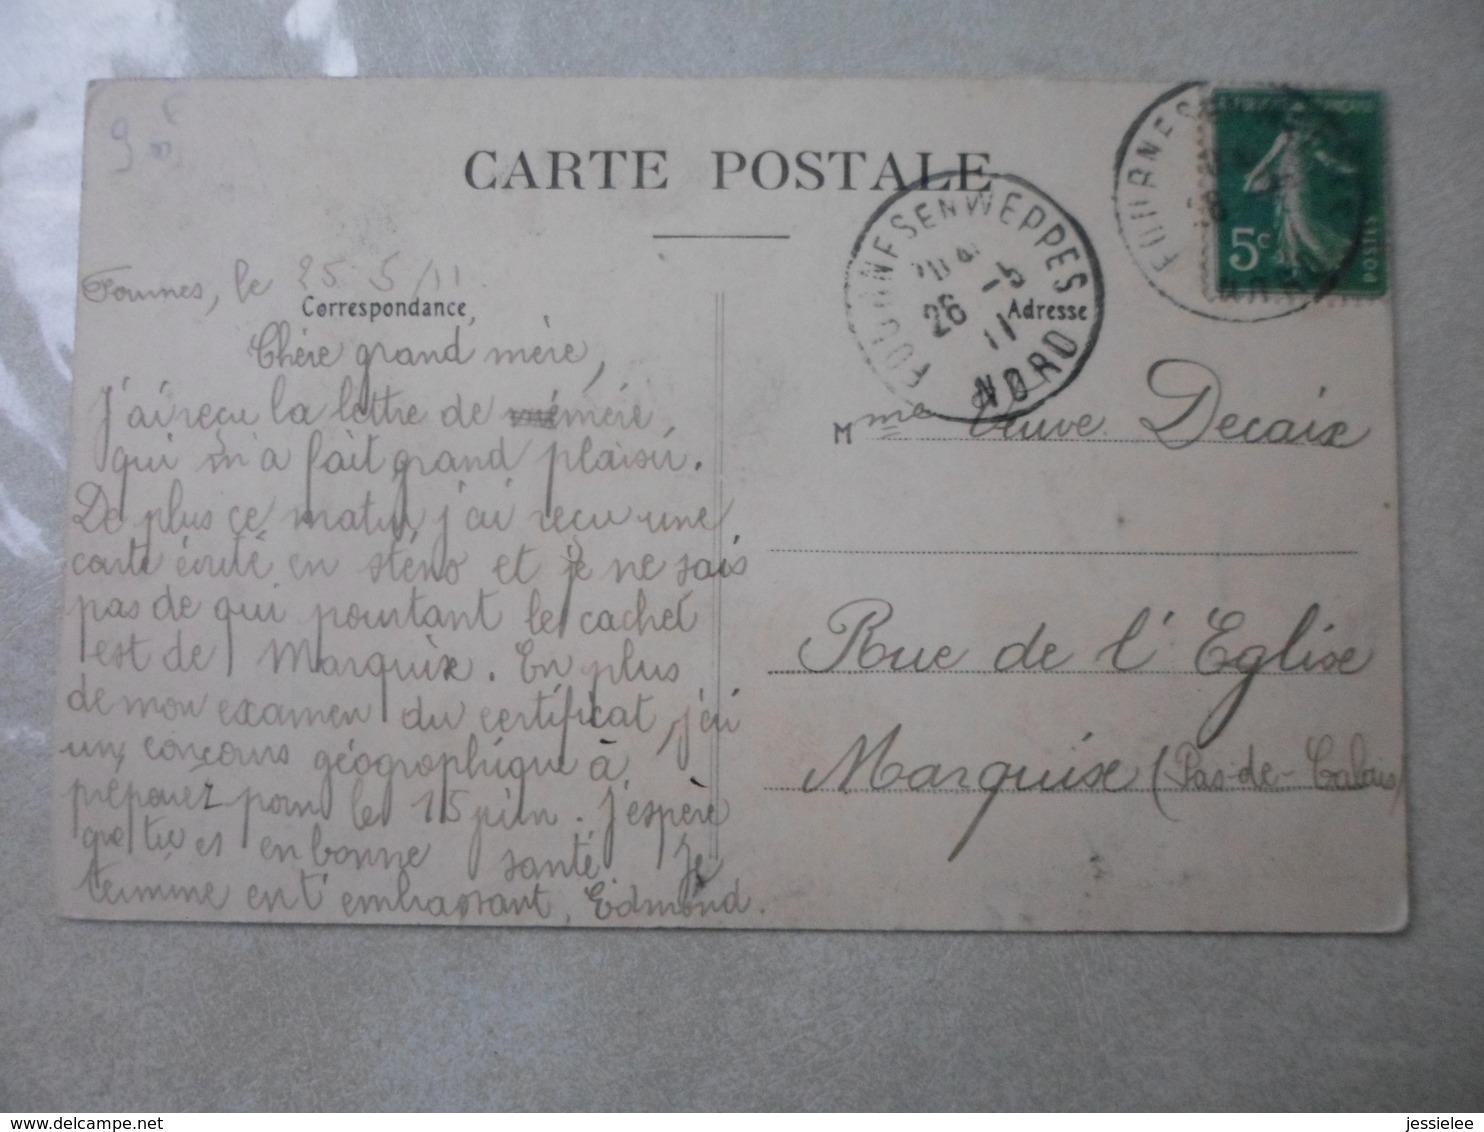 CARTE POSTALE
Fournes, le 25.5/11
Correspondance,
Chère grand mère,
J'ai reçu la lettre de mémère,
qui m'a fait grand plaisir.
De plus ce matin j'ai reçu une
carte écrite en sténo et je ne sais
pas de qui pourtant le cachet
est de Marquise. En plus
de mon examen du certificat, j'ai
un concours géographique à
préparer pour le 15 juin. J'espère
que tu es en bonne santé Je
termine en t'embrassant, Edmond.
FOURNES EN WEPPES
26 -5
11
NORD
Adresse
FOURNES
5c
POSTES
Mme Veuve Decaix
Rue de l'Eglise
Marquise (Pas-de-Calais)
delcampe.net
jessielee